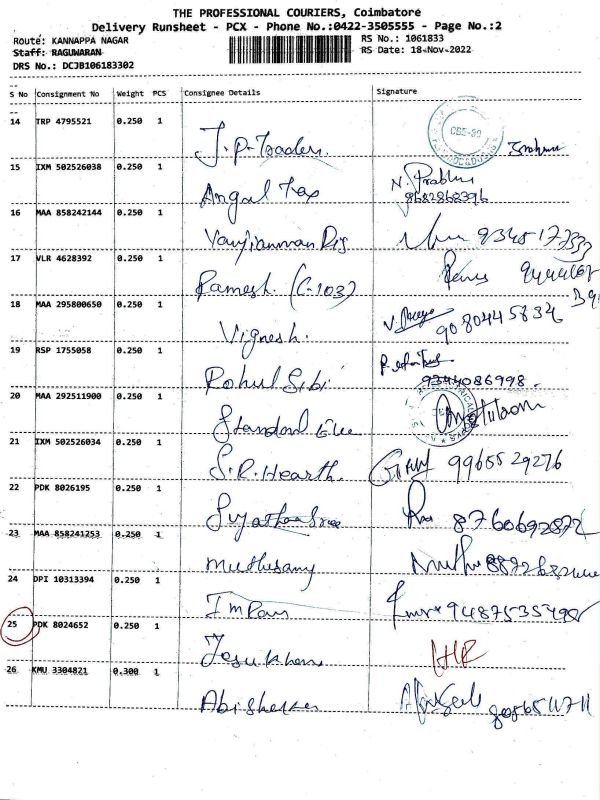 THE PROFESSIONAL COURIERS, Coimbatore
Delivery Runsheet - PCX - Phone No.:0422-3505555 - Page No.:2
Route: KANNAPPA NAGAR RS No.: 1061833
Staff: RAGUWARAN RS Date: 18-Nov-2022
DRS No.: DCJB106183302
S No Consignment No Weight PCS Consignee Details Signature
14 TRP 4795521 0.250 1
J.P. Traders CBE-39
15 IXM 502526038 0.250 1
Angal Tex N. Prabhu
8682868396
16 MAA 858242144 0.250 1
9345177333
17 VLR 4628392 0.250 1
Ramesh. (C-103)
18 MAA 295800650 0.250 1
Vignesh. 9080445834
19 RSP 1755058 0.250 1
Rohul Sibi 9344086998.
20 MAA 292511900 0.250 1
Standard Ele
21 IXM 502526034 0.250 1
S.R. Hearth. 9965529276
22 PDK 8026195 0.250 1
8760692872
23 MAA 858241253 0.250 1
Muthusamy
24 DPI 10313394 0.250 1
Imran
25 PDK 8024652 0.250 1
26 KMU 3304821 0.300 1
Abishekar